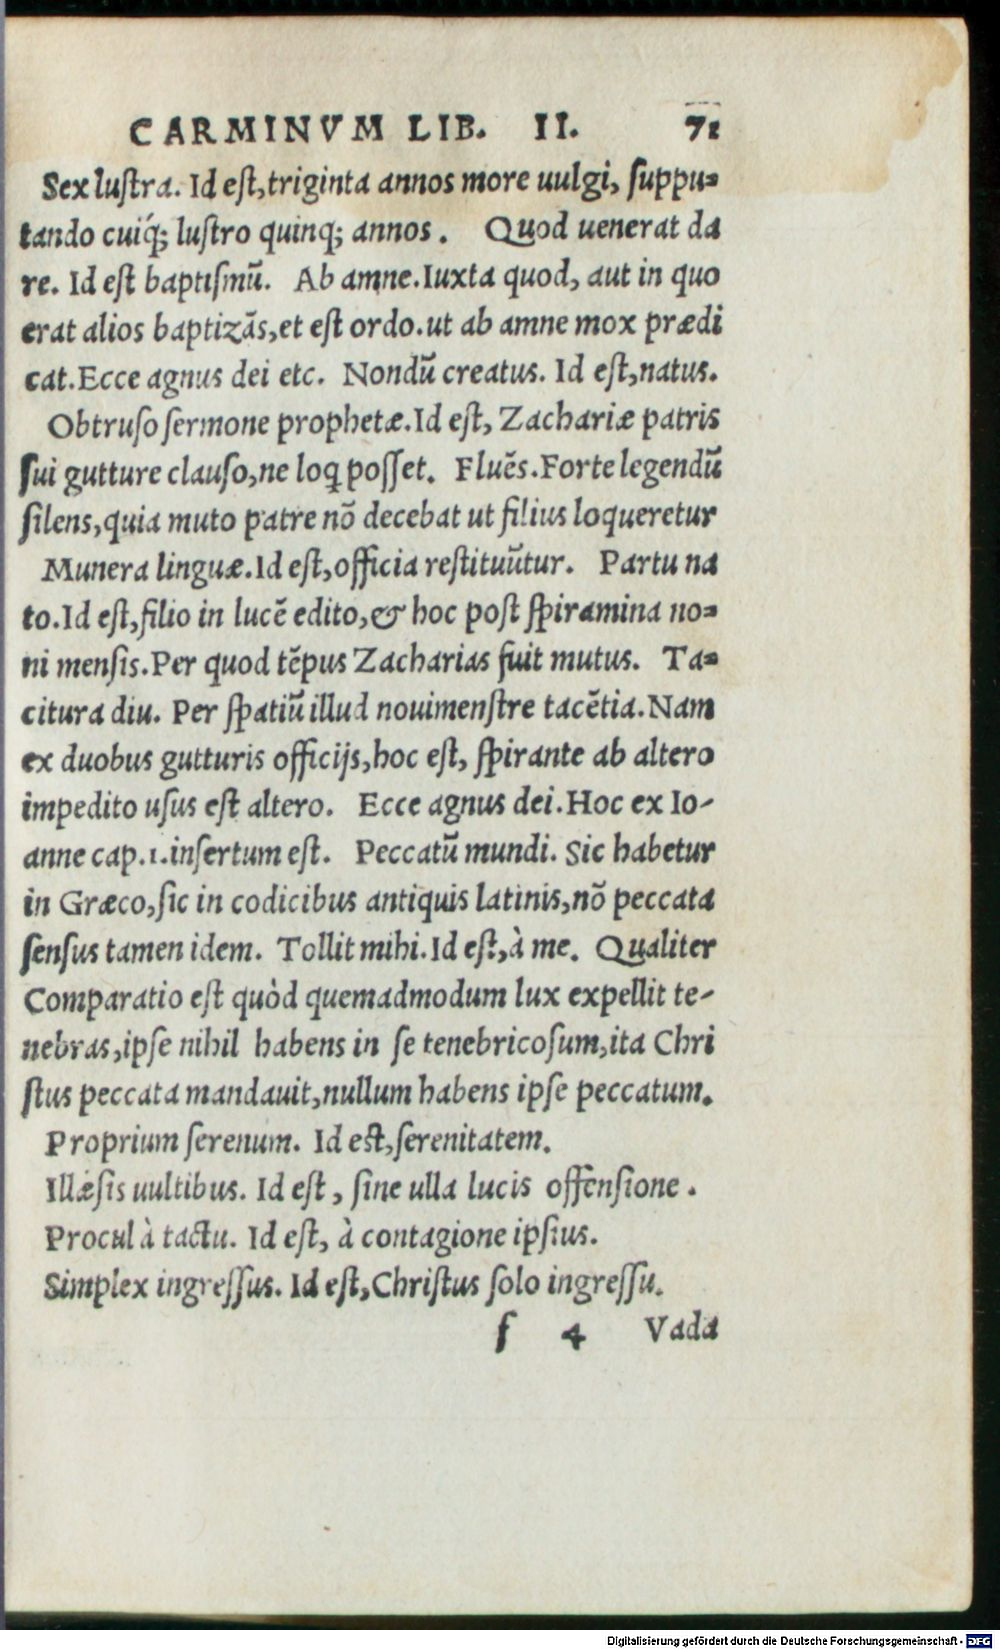 CARMINVM LIB. II. 71
Sex lustra. Id est, triginta annos more uulgi, suppu-
tando cuiq́; lustro quinq; annos. Quod uenerat da
re. Id est baptismū. Ab amne. Iuxta quod, aut in quo
erat alios baptizās, et est ordo. ut ab amne mox prædi
cat. Ecce agnus dei etc. Nondū creatus. Id est, natus.
Obtruso sermone prophetæ. Id est, Zachariæ patris
sui gutture clauso, ne loq posset. Fluēs. Forte legendū
silens, quia muto patre nō decebat ut filius loqueretur
Munera linguæ. Id est, officia restituūtur. Partu na
to. Id est, filio in lucē edito, & hoc post spiramina no-
ni mensis. Per quod tēpus Zacharias fuit mutus. Ta-
citura diu. Per spatiū illud nouimenstre tacētia. Nam
ex duobus gutturis officijs, hoc est, spirante ab altero
impedito usus est altero. Ecce agnus dei. Hoc ex Io-
anne cap. 1. insertum est. Peccatū mundi. Sic habetur
in Græco, sic in codicibus antiquis latinis, nō peccata
sensus tamen idem. Tollit mihi. Id est, à me. Qualiter
Comparatio est quòd quemadmodum lux expellit te-
nebras, ipse nihil habens in se tenebricosum, ita Chri
stus peccata mandauit, nullum habens ipse peccatum.
Proprium serenum. Id est, serenitatem.
Illæsis uultibus. Id est, sine ulla lucis offensione.
Procul à tactu. Id est, à contagione ipsius.
Simplex ingressus. Id est, Christus solo ingressu.
f 4 Vada
Digitalisierung gefördert durch die Deutsche Forschungsgemeinschaft - DFG